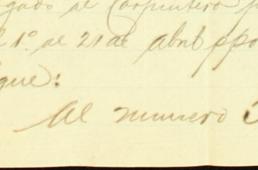 gado de Carpintero
1º. de 21 de abril ppo
que:
Al numero 3